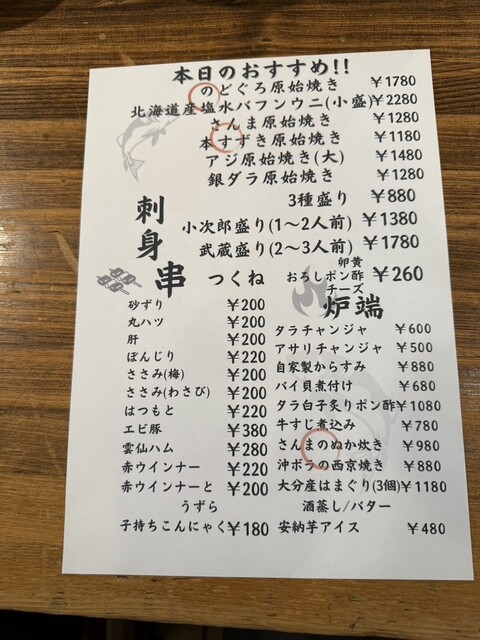 本日のおすすめ!!
のどぐろ原始焼き ￥1780
北海道産塩水バフンウニ(小盛)￥2280
さんま原始焼き ￥1280
本すずき原始焼き ￥1180
アジ原始焼き(大) ￥1480
銀ダラ原始焼き ￥1280
刺身
3種盛り ￥880
小次郎盛り(1〜2人前) ￥1380
武蔵盛り(2〜3人前) ￥1780
串
つくね 卵黄 おろしポン酢 チーズ ￥260
砂ずり ￥200
丸ハツ ￥200
肝 ￥200
ぼんじり ￥220
ささみ(梅) ￥200
ささみ(わさび) ￥200
はつもと ￥220
エビ豚 ￥380
雲仙ハム ￥280
赤ウインナー ￥220
赤ウインナーと ￥200
うずら
子持ちこんにゃく ￥180
炉端
タラチャンジャ ￥600
アサリチャンジャ ￥500
自家製からすみ ￥880
バイ貝煮付け ￥680
タラ白子炙りポン酢 ￥1080
牛すじ煮込み ￥780
さんまのぬか炊き ￥980
沖ボラの西京焼き ￥880
大分産はまぐり(3個) ￥1180
酒蒸し/バター
安納芋アイス ￥480